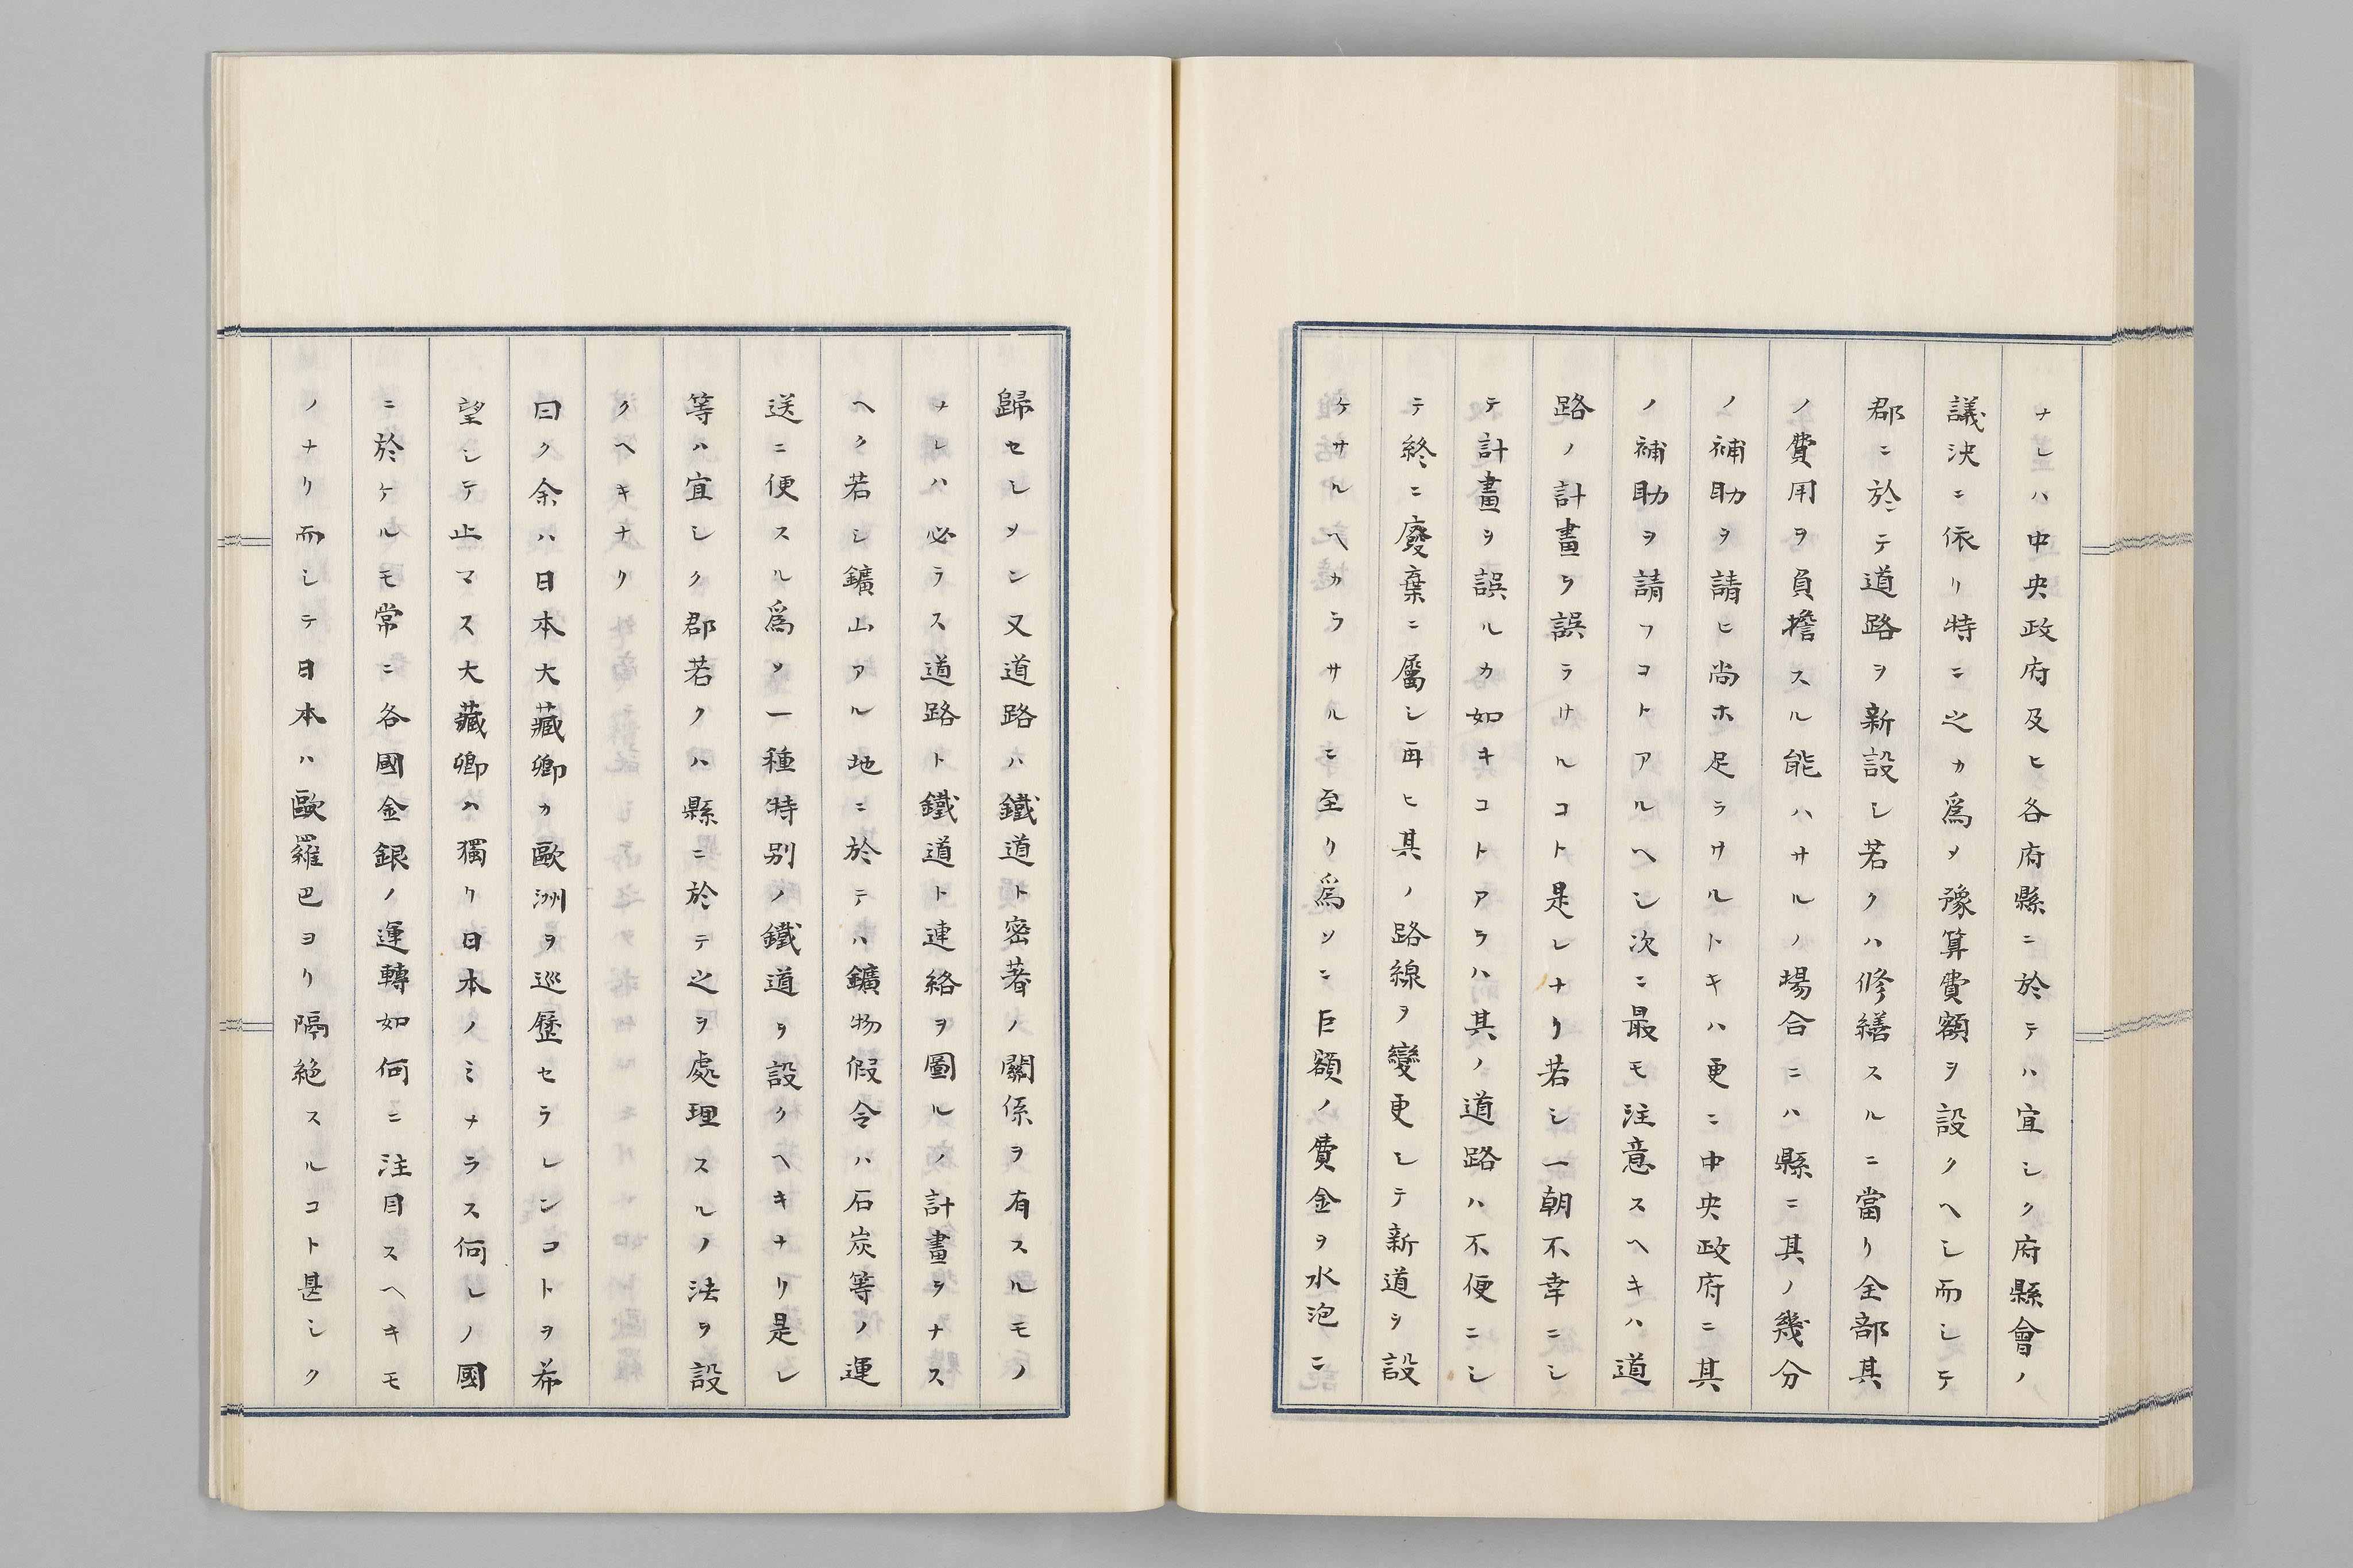 ナレハ中央政府及ヒ各府縣ニ於テハ宜シク府縣會ノ
議決ニ依リ特ニ之カ爲メ豫算費額ヲ設クヘシ而シテ
郡ニ於テ道路ヲ新設シ若クハ修繕スルニ當リ全部其
ノ費用ヲ負擔スル能ハサルノ場合ニハ縣ニ其ノ幾分
ノ補助ヲ請ヒ尚ホ足ラサルトキハ更ニ中央政府ニ其
ノ補助ヲ請フコトアルヘシ次ニ最モ注意スヘキハ道
路ノ計畫ヲ誤ラサルコト是レナリ若シ一朝不幸ニシ
テ計畫ヲ誤ルカ如キコトアラハ其ノ道路ハ不便ニシ
テ終ニ廢棄ニ屬シ再ヒ其ノ路線ヲ變更シテ新道ヲ設
ケサルヘカラサルニ至リ爲メニ巨額ノ費金ヲ水泡ニ
歸セシメン又道路ハ鐵道ト密著ノ關係ヲ有スルモノ
ナレハ必ラス道路ト鐵道ト連絡ヲ圖ルノ計畫ヲナス
ヘク若シ鑛山アル地ニ於テハ鑛物假令ハ石炭等ノ運
送ニ便スル爲メ一種特別ノ鐵道ヲ設クヘキナリ是レ
等ハ宜シク郡若クハ縣ニ於テ之ヲ處理スルノ法ヲ設
クヘキナリ
曰ク余ハ日本大藏卿カ歐洲ヲ巡歷セラレンコトヲ希
望シテ止マス大藏卿ハ獨リ日本ノミナラス何レノ國
ニ於ケルモ常ニ各國金銀ノ運轉如何ニ注目スヘキモ
ノナリ而シテ日本ハ歐羅巴ヨリ隔絶スルコト甚シク